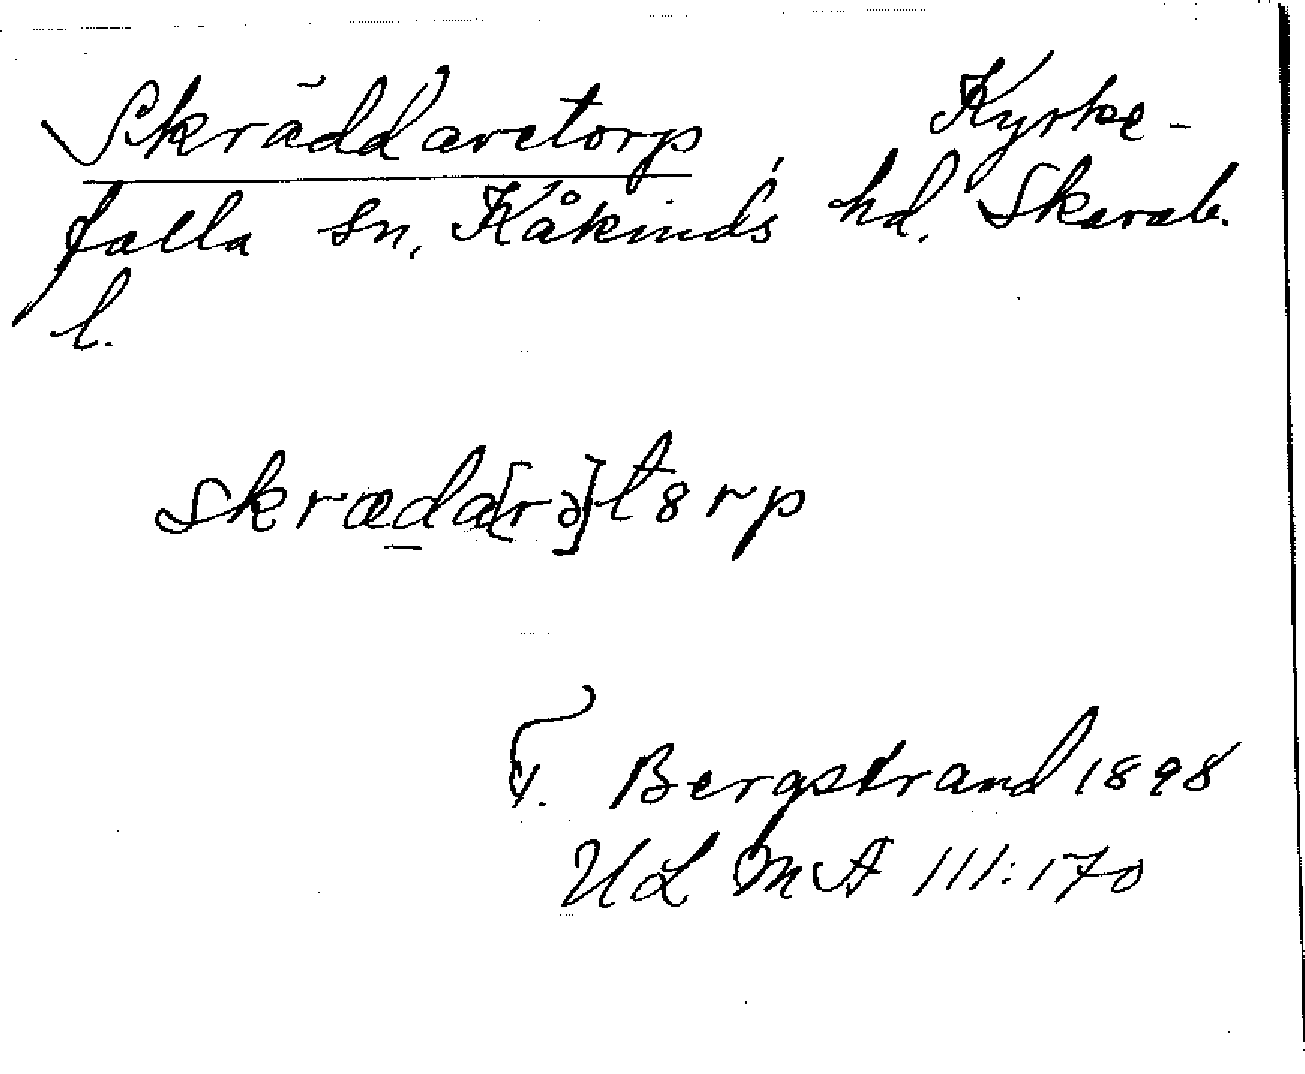 Skräddaretorp Kyrke-
falla sn, Kåkinds hd. Skarab.
l.
skræda[rə]t8rp
T. Bergstrand 1898
ULMA 111:170